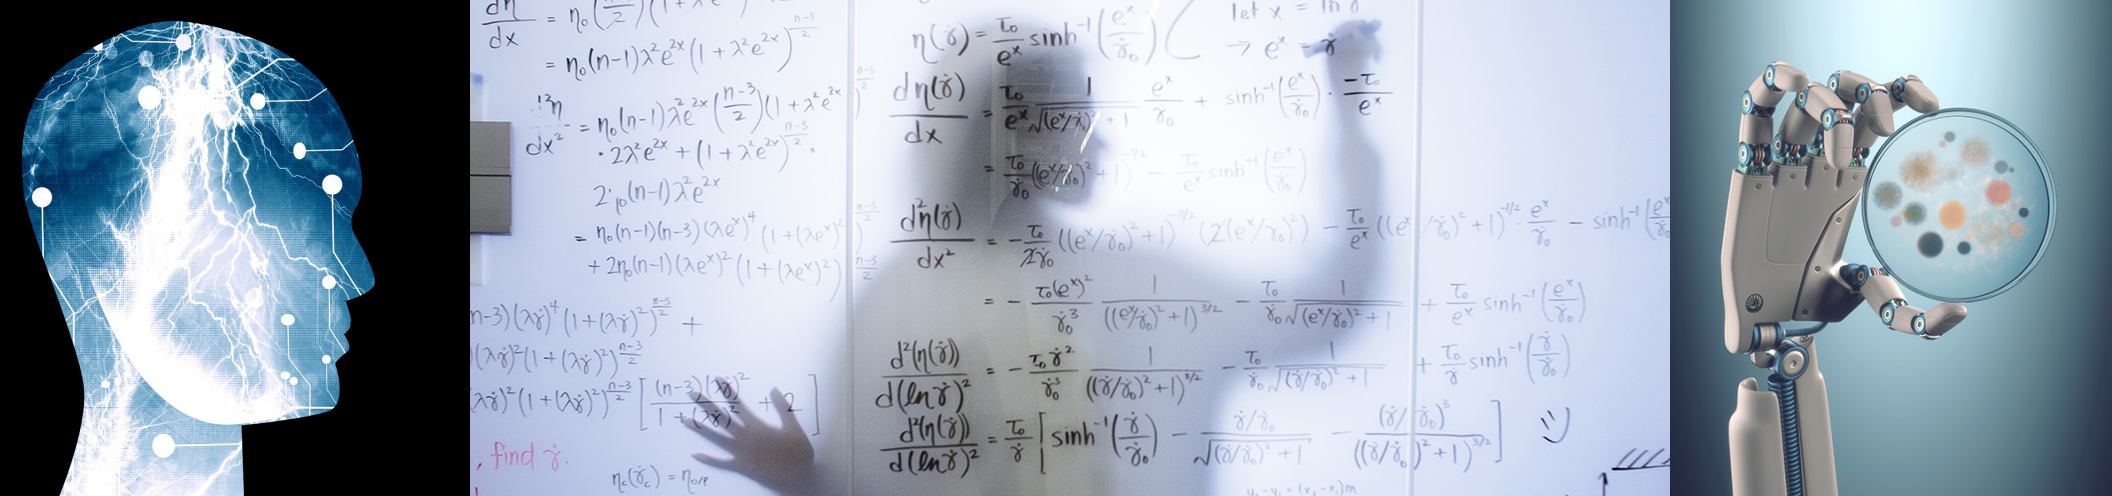 dη/dx = η₀(n-1/2)(1+λ²e
= η₀(n-1)λ²e²ˣ(1+λ²e²ˣ)^((n-3)/2)
d²η/dx² = η₀(n-1)λ²e²ˣ((n-3)/2)(1+λ²e²ˣ)^((n-5)/2)
· 2λ²e²ˣ + (1+λ²e²ˣ)^((n-3)/2) ·
2η₀(n-1)λ²e²ˣ
= η₀(n-1)(n-3)(λeˣ)⁴(1+(λeˣ)²)^((n-5)/2)
+ 2η₀(n-1)(λeˣ)²(1+(λeˣ)²)^((n-3)/2)
n-3)(λγ̇)⁴(1+(λγ̇)²)^((n-5)/2) +
(λγ̇)²(1+(λγ̇)²)^((n-3)/2)
(λγ̇)²(1+(λγ̇)²)^((n-3)/2) [(n-3)(λγ̇)²/(1+(λγ̇)²) + 2]
, find γ̇.
η(γ̇) = τ₀/eˣ sinh⁻¹(eˣ/γ̇₀)
let x = ln γ̇
→ eˣ = γ̇
dη(γ̇)/dx = τ₀/eˣ 1/√((eˣ/γ̇₀)²+1) eˣ/γ̇₀ + sinh⁻¹(eˣ/γ̇₀) · -τ₀/eˣ
= τ₀/γ̇₀ ((eˣ/γ̇₀)²+1)^(-1/2) - τ₀/eˣ sinh⁻¹(eˣ/γ̇₀)
d²η(γ̇)/dx² = -τ₀/2γ̇₀ ((eˣ/γ̇₀)²+1)^(-3/2) (2(eˣ/γ̇₀)²) - τ₀/eˣ ((eˣ/γ̇₀)²+1)^(-1/2) · eˣ/γ̇₀ - sinh⁻¹(eˣ/γ̇₀
= - τ₀(eˣ)²/γ̇₀³ 1/((eˣ/γ̇₀)²+1)^(3/2) - τ₀/γ̇₀ 1/√((eˣ/γ̇₀)²+1) + τ₀/eˣ sinh⁻¹(eˣ/γ̇₀)
d²(η(γ̇))/d(lnγ̇)² = - τ₀γ̇²/γ̇₀³ 1/((γ̇/γ̇₀)²+1)^(3/2) - τ₀/γ̇₀ 1/√((γ̇/γ̇₀)²+1) + τ₀/γ̇ sinh⁻¹(γ̇/γ̇₀)
d²(η(γ̇))/d(lnγ̇)² = τ₀/γ̇ [sinh⁻¹(γ̇/γ̇₀) - (γ̇/γ̇₀)/√((γ̇/γ̇₀)²+1) - (γ̇/γ̇₀)³/((γ̇/γ̇₀)²+1)^(3/2)]